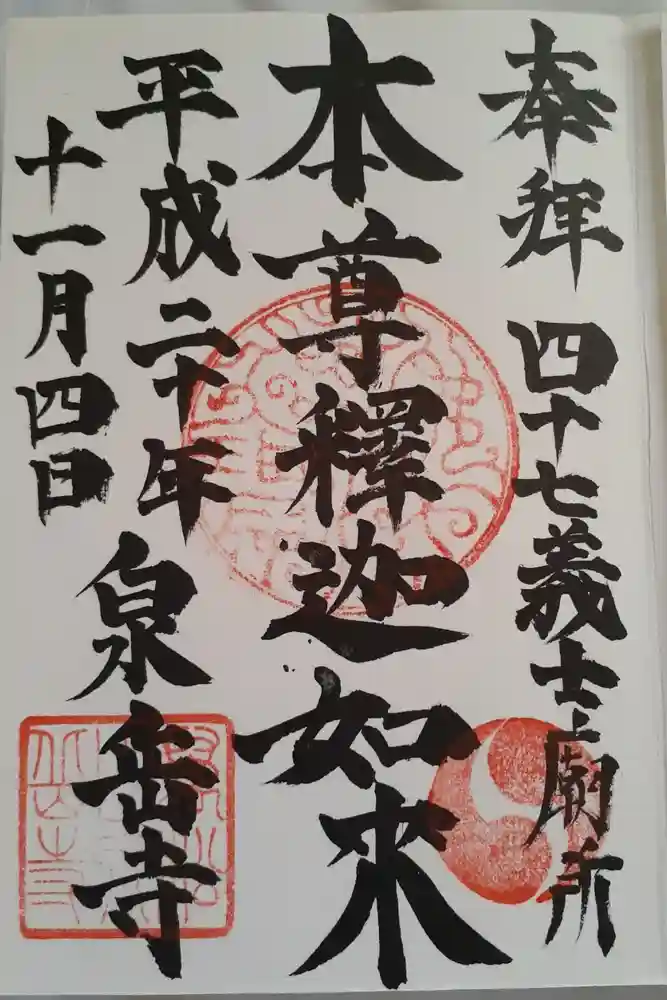 奉拝 四十七義士廟所
本尊釋迦如来
平成二十年
十一月四日
泉岳寺